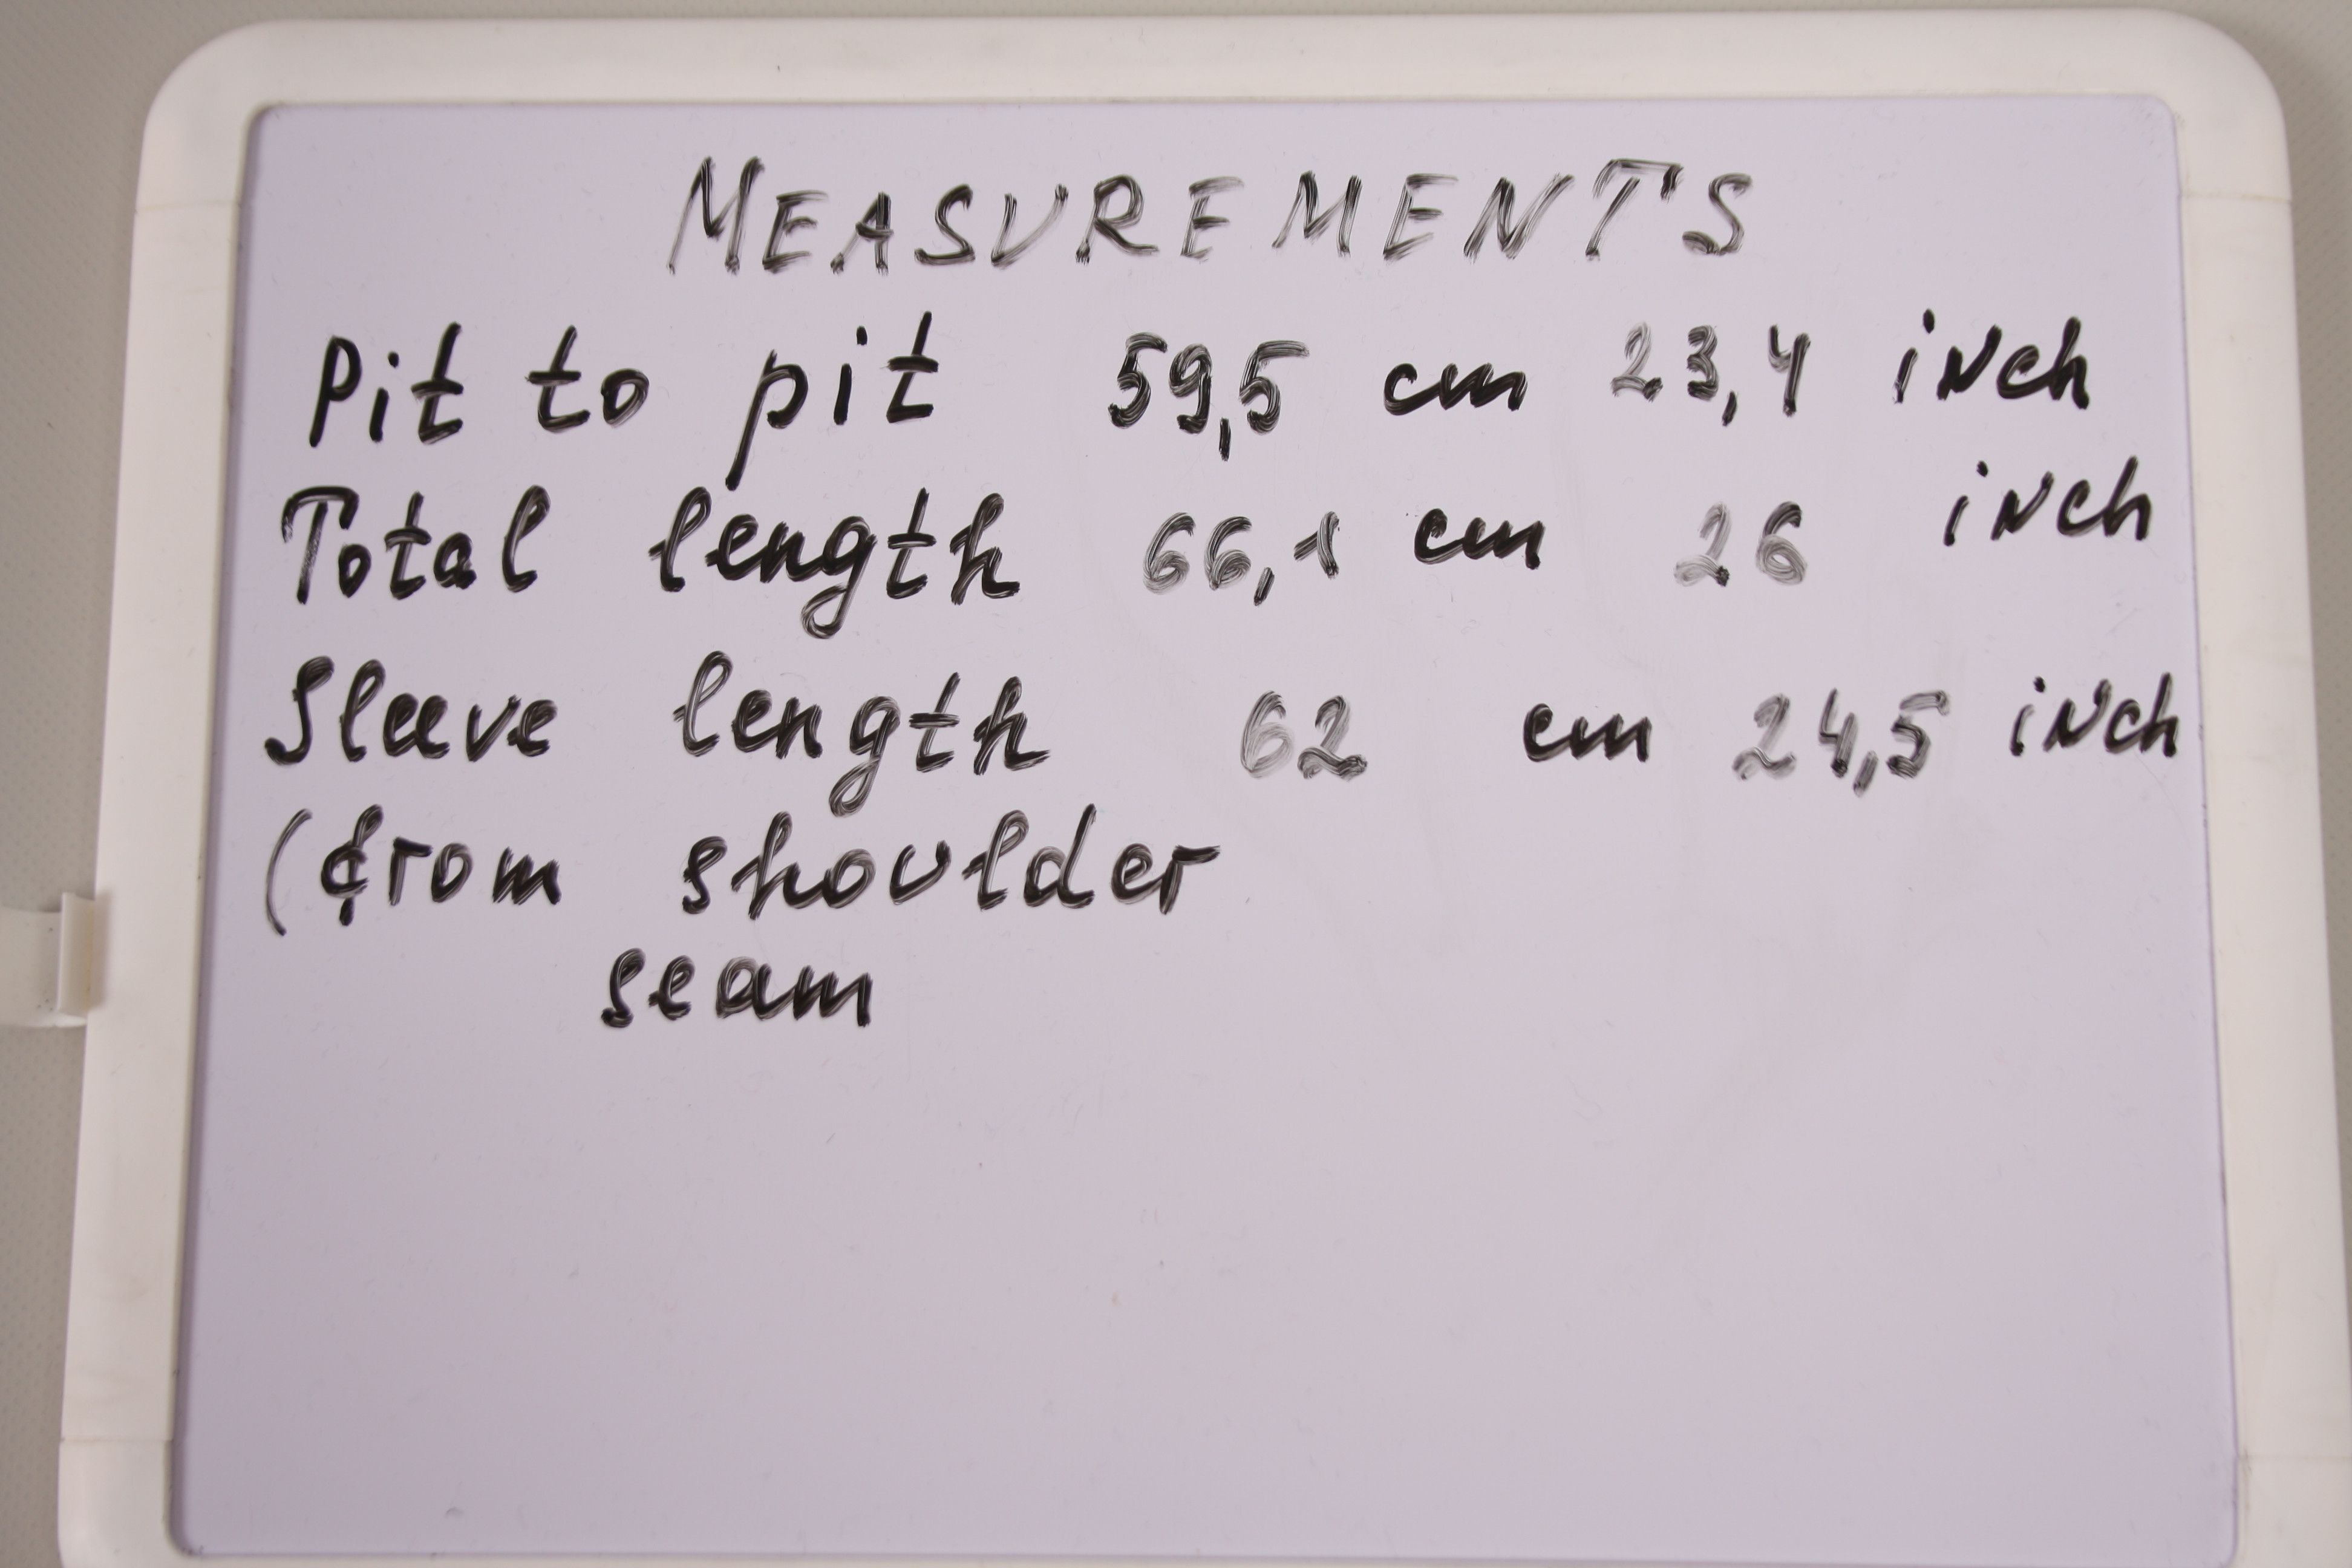 MEASUREMENTS
Pit to pit 59,5 cm 23,4 inch
Total length 66,1 cm 26 inch
Sleeve length 62 cm 24,5 inch
(from shoulder
seam